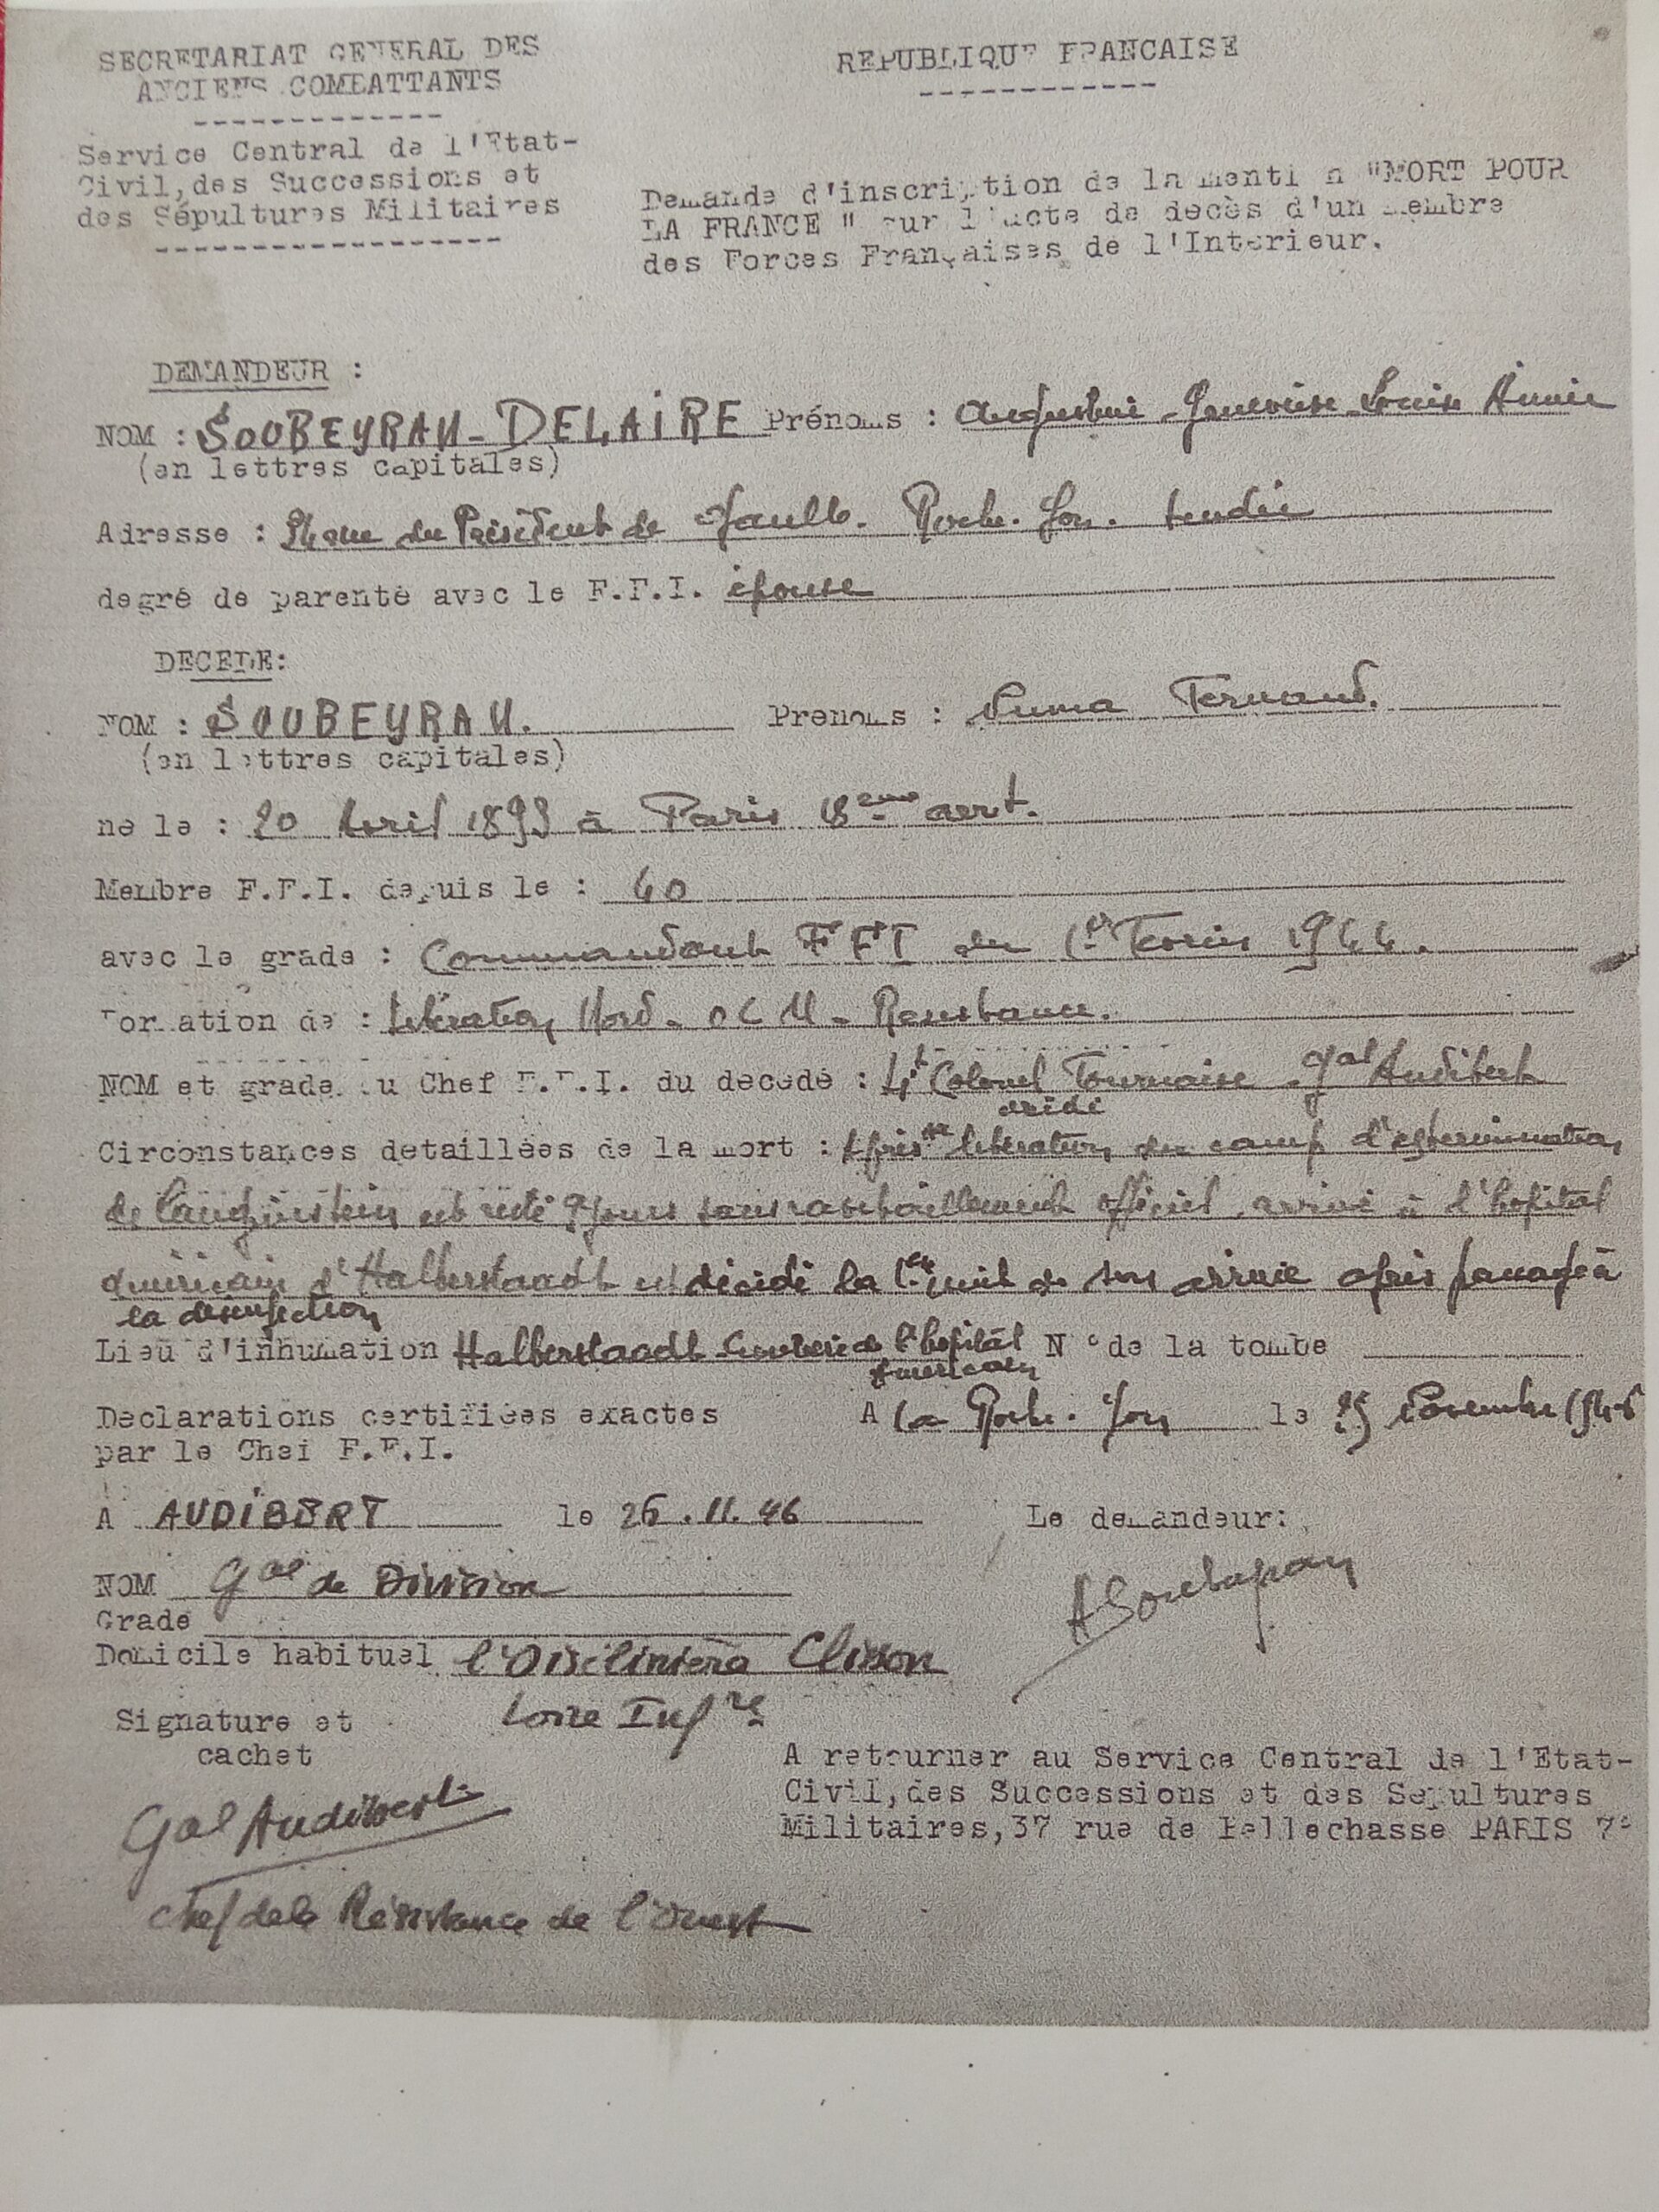 SECRETARIAT GENERAL DES
ANCIENS COMBATTANTS
Service Central de l'Etat-
Civil, des Successions et
des Sépultures Militaires
REPUBLIQUE FRANCAISE
Demande d'inscription de la mention "MORT POUR
LA FRANCE " sur l'acte de decès d'un membre
des Forces Françaises de l'Interieur.
DEMANDEUR :
NOM : SOUBEYRAN-DELAIRE Prénoms : Augustine Geneviève Louise
(en lettres capitales)
Adresse : rue du Président de Gaulle. Roche. Yon. Vendée
degré de parenté avec le F.F.I. épouse
DECEDE:
NOM : SOUBEYRAN. Prenoms : Numa Fernand.
(en lettres capitales)
né le : 20 Avril 1893 à Paris 18eme arrt.
Membre F.F.I. depuis le : 40
avec le grade : Commandant FFI du 1er Fevrier 1944.
Formation de : Libération Nord - OCM - Resistance.
NOM et grade du Chef F.F.I. du decedé : Lt Colonel Gal Audibert
Circonstances detaillées de la mort : Après la libération du camp d'extermination
de est resté 9 jours sans ravitaillement officiel, arrivé à l'hopital
américain d'Halberstaadt est décédé la 1ere nuit de son arrivée après passage à
la désinfection
Lieu d'inhumation Halberstaadt Cimetière de l'hopital N° de la tombe
américain
Declarations certifiées exactes A la Roche. Yon le 25 Novembre 1946
par le Chef F.F.I.
A AUDIBERT le 26.11.46 Le demandeur:
NOM Gal de Division
ASoubeyran
Grade
Domicile habituel l'Oiselinière Clisson
Loire Infre
Signature et
cachet
A retourner au Service Central de l'Etat-
Civil, des Successions et des Sepultures
Militaires, 37 rue de Bellechasse PARIS 7°
Gal Audibert
Chef de la Résistance de l'Ouest